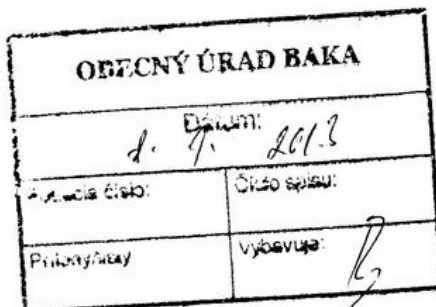 OBECNÝ ÚRAD BAKA
Dátum:
2013
číslo:
Číslo spisu:
Prílohy/listy
Vybavuje: